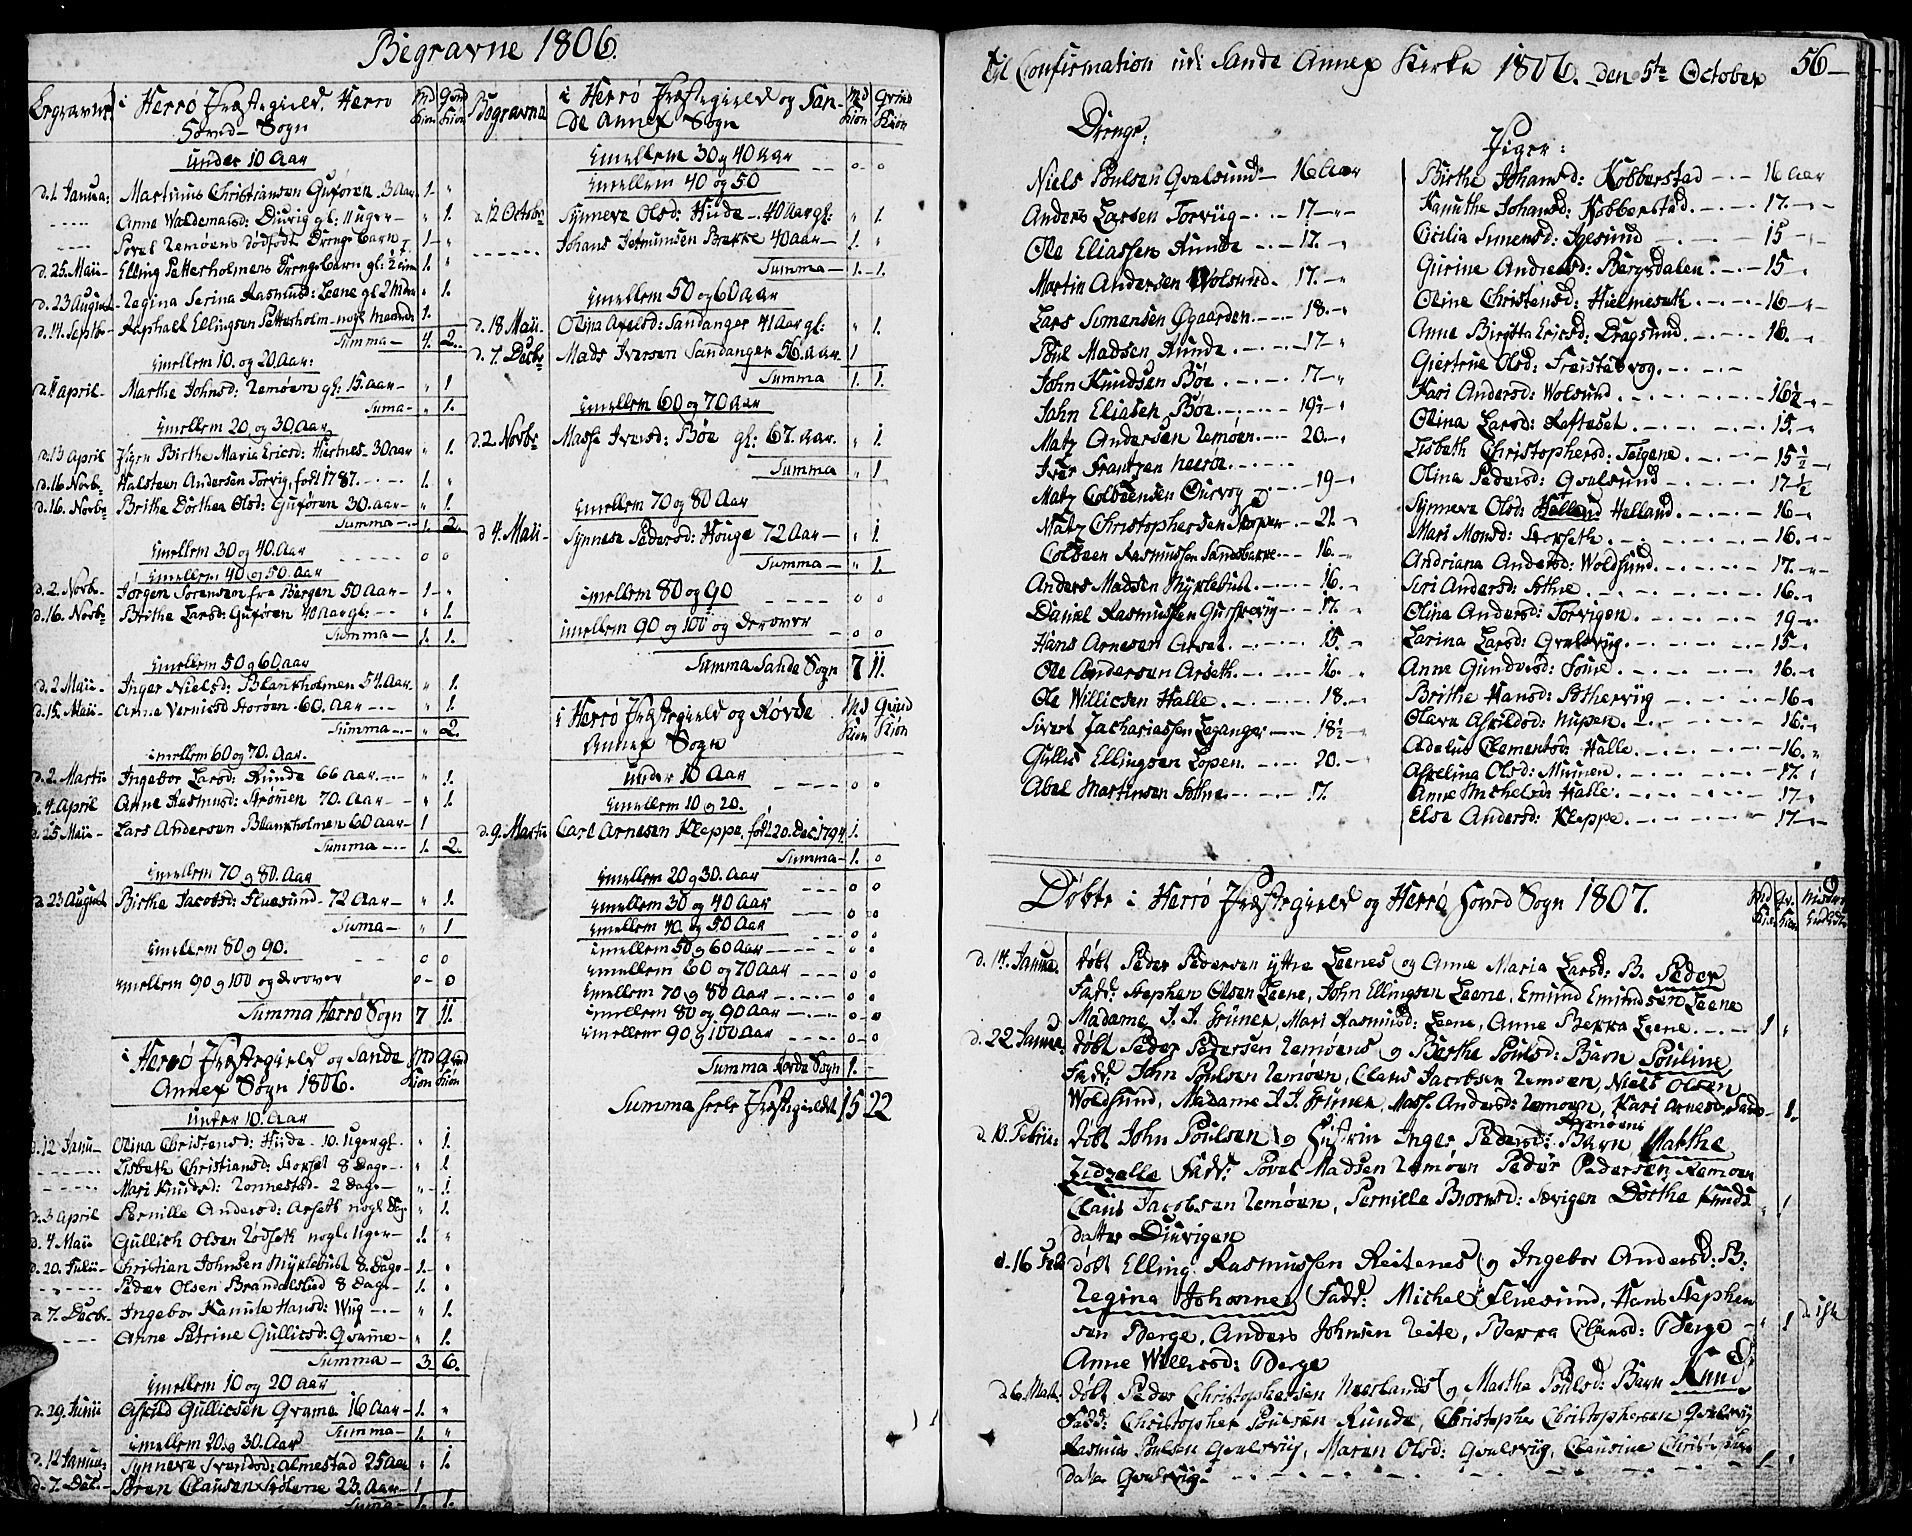 Begravne 1806.
Begravne i Herrø Præstegield, Herrø Md Qvind
Hoved-Sogn Kiön Kiön
under 10 Aar
d. 1 Janua: Martinus Christiansen Gufören 3 Aar 1. "
----- Anne Waldemarsd: Diurig gl: 11 uger - " 1.
---- Povel Remöens dödfödt Drengebarn 1 - "
d. 25. Maii - Elling Pettersholmens Drengebarn gl: 1. "
d. 23 August - Regina Serina Rasmusd: Leene gl 2 Mdr " 1.
d. 14. Septbr - Raphael Ellingsen Pettersholm 1.
Summa - 4. 2.
imellem 10. og 20 Aar:
d. 1 april - Marthe Johnsd: Remöen gl: 15. aar - " 1
Suma - " 1.
imellem 20 og 30 Aar
d. 13 April Pigen Birthe Maria Ericsd: Hiertnes - 30 aar " 1.
d. 16 Novbr Halsteen Andersen Torvig, født 1787. 1. "
d. 16. Novbr Brithe Dorthea Olsd: Gufören 30. aar - " 1.
Summa - 1. 2.
imellem 30 og 40. Aar 0 0
imellem 40 og 50. Aar
d. 2. Novbr - Jörgen Sörensen fra Bergen 50 Aar - 1 - "
d. 16. Novbr - Brithe Larsd: Gufören 40 aar gl: - " 1.
Summa - 1. 1.
imellem 50 g 60 Aar
d. 2 Maii - Inger Nielsd: Blankholmen 54. Aar - " 1.
d. 15. Maii - Anne Vernicsd Störöen - 60. Aar - " 1.
Summa - " 2.
imellem 60 og 70. Aar.
d. 2. Martii Ingebor Larsd: Runde 66 aar. " 1.
d. 4. April Anne Rasmusd: Strömen 70. Aar - " 1.
d. 25 Maii - Lars Andersen Blankholmen 60 Aar - 1
Summa - 1. 2.
imellem 70 g 80. Aar
d. 23 August Birthe Jacobsd: Fluesund - 72 Aar - " 1.
Suma - " 1
imellem 80 g 90. 0 0
imellem 90 g 100 og derover 0 - 0
Summa Herrø Sogn 7 11.
i Herrø Præstegield og Sande Md Qvind
Annex Sogn 1806. Kiön Kiön
under 10. Aar
d. 12 Janu - Olina Christensd: Hiide - 10. uger gl. " 1.
------ Lisbeth Christiansd: Storset 8 Dage - " 1.
----- Mari Knudsd: Ronnestad - 2 Dage - " 1.
d. 3 April Pernille Andersd: Arseth nogl: Dage " 1.
d. 4 Maii Gullich Olsen Rödseth nogle Uger - 1. "
d. 20. Julii - Christian Johnsen Myklebust 8. Dage - 1. "
------ Peder Olsen Brandalstad 8 Dage - 1. "
d. 7. Decbr - Ingebor Kanute Hansd: Wiig - " 1.
---- Anne Petrine Gullicsd: Qvame - " 1.
Summa - 3. 6.
imellem 10 og 20 Aar
d. 29. Junii Gullicsen Qvame 16 Aar - 1. "
Summa - 1. "
imellem 20. g 30. Aar
d. 12 Janua: Synneve Svendsd: Almestad 25 Aar " 1.
d. 7. Dec - Peren Clausen Stölene 23. Aar - 1
Suma - 1. 1.
Begravne i Herrø Præstegield og San- Md Qvind
de Annex Sogn Kiön Kiön
imellem 30 g 40 Aar 0 - 0
imellem 40 og 50
d. 12 Octobr Synneve Olsd: Hiide - 40 Aar gl: " 1.
------ Johans Jetmunsen Brekke 40 aar - 1. "
Summa - 1. - 1.
imellem 50 og 60 Aar
d. 18 Maii Olina Axelsd: Sandanger 41 Aar gl: " 1
d. 7. Decbr Mads Iversen Sandanger 56. aar 1
Summa 1. 1.
imellem 60 og 70 Aar
d. 2. Novbr Masse Iversd: Böe gl: 67. aar. " 1.
Summa " 1
imellem 70 og 80 Aar
d 4. Maii - Synneve Pedersd: Houge 72 Aar - " 1.
Summa - " 1.
imellem 80 og 90 0 0
imellem 90 og 100 og derover - 0 0
Summa Sande Sogn 7 11.
i Herrø Præstegield og Rövde Md Qvind
Annex Sogn Kiön Kiön
under 10 Aar 0 0
imellem 10 g 20.
d. 9. Martii Carl Arnesen Kleppe, født 20. Dec: 1794 1.
Summa - 1. 0
imellem 20 g 30. Aar 0 0
imellem 30 g 40 Aar 0 0
imellem 40 g 50 Aar 0 0
imellem 50 g 60 Aar 0 0
imellem 60 og 70 Aar 0 0
imellem 70 g 80 Aar 0 0
imellem 80 g 90 Aar 0 - 0
imellem 90 g 100 Aar 0 - 0
Summa Rövde Sogn 1. -
Summa heele Præstegieldet 15 22
til Confirmation udi Sande Annex Kirke 1806. den 5te October 56 -
Drenge:
Niels Poulsen Qvalsund - 16 Aar
Anders Larsen Torviig - 17 - "
Ole Eliassen Runde - 17. - "
Martin Andersen Wolsund. 17. - "
Lars Simensen Ögaarden - 18. - "
Poul Madsen Runde - 17 - "
John Knudsen Böe - 17 - "
Jahn Eliasen Böe - 19½ - "
Matz Andersen Remöen - 20. - "
Iver Frantzen
Matz Colbeensen 19 - "
Matz Christophersen Nopen - 21. "
Colbeen Rasmussen Sandsbakke - 16. "
Anders Madsen Myklebust - 16. - "
Daniel Rasmussen Gurskeviig - 17. "
Hans Arnesen Arset - 15. - "
Ole Andersen Arseth - 16. "
Ole Willicsen Halle - 18. - "
Sivert Zachariassen Leganger - 18½ - "
Gullic Ellingsen Lopen - 20. - "
Abel Martinsen Sothne - 17.
Piger:
Birthe Johansd: Kobberstad - 16 Aar
Kanuthe Johansd: Kobberstad - 17. - "
Cicilia Simensd: Igesund - 15 - "
Gurine Andreasd: Bergsdalen - 15 "
Oline Christensd: Hielmeseth - 16 - "
Anne Birgitta Ericsd: Dragsund - 16. "
Giertrue Olsd: Freistadvog
Kari Andersd: Wolsund - 16½ "
Olina Larsd: Rafteset - 15. - "
Lisbeth Christophersd: Teigene - 15½ - "
Olina Pedersd: Qvalsund - 17½
Synneve Olsd: Helland - 16 - "
Mari Monsd: Storseth - 16. - "
Andriana Andersd: Woldsund - 17. - "
Siri Andersd: Sothne - 16. - "
Olina Andersd: Torvigen - 19 - "
Larina Larsd: Qvalsviig - 15 - "
Anne Gundersd: - 16. - "
Brithe Hansd: Sotherviig - 16 - "
Olave Asvildsd: Nupen - 16. - "
Adelus Clementsd: Halle - 16. "
Aselina Olsd: Muenen - 17. "
Anne Michelsd: Halle - 17 - "
Else Andersd: Kleppe - 17 - "
Döbte i Herrø Præstegield og Herrø Hoved Sogn 1807.
d. 14. Janua. döbt Peder Pedersen yttre Leenes og Anne Maria Larsd: B. Peder
Fadd: Stephen Olsen Leene, John Ellingsen Leene, Emund Emundsen Leene
Madame J. J. Grüner, Mari Rasmusd: Leene, Anne Bekka Leene. 1 "
d. 22. Janua: döbt Peder Pedersen Remöens og Berthe Poulsd: Barn Pouline
Fadd: John Poulsen Remöen, Claus Jacobsen Remöen, Niels Olsen
Woldsund, Madame J. J. Grüner, Mass. Andersd: Remöen, Kari Arnesd: - 1.
d. 10. Febru: döbt John Poulsen Remöens og Hustrue Inger Pedersd: Barn Marthe
Zidzelle Fadd: Povel Madsen Remöen Peder Pedersen Remöen
Claus Jacobsen Remöen, Pernille Biornsd: Dorthe Knuds
datter Diurigen " 1
d. 16 döbt Elling Rasmussen Reitenes og Ingebor Andersd: B.
Regina Johanne Fadd: Michel Fluesund, Hans Stephen
sen Berge, Anders Johnsen Reite, Bekka Clausd: Berge - " 1
Anne Willicsd: Berge
d. 6. Mart: döbt Peder Christophersen og Marthe Poulsd: Barn Knud
Fadd: Christopher Poulsen Runde, Christopher Christophersen Qvalsviig
Rasmus Poulsen Qvalsviig, Maren Olsd: Qvalsviig, Clausine Christopher 1. "
datter Qvalsviig -